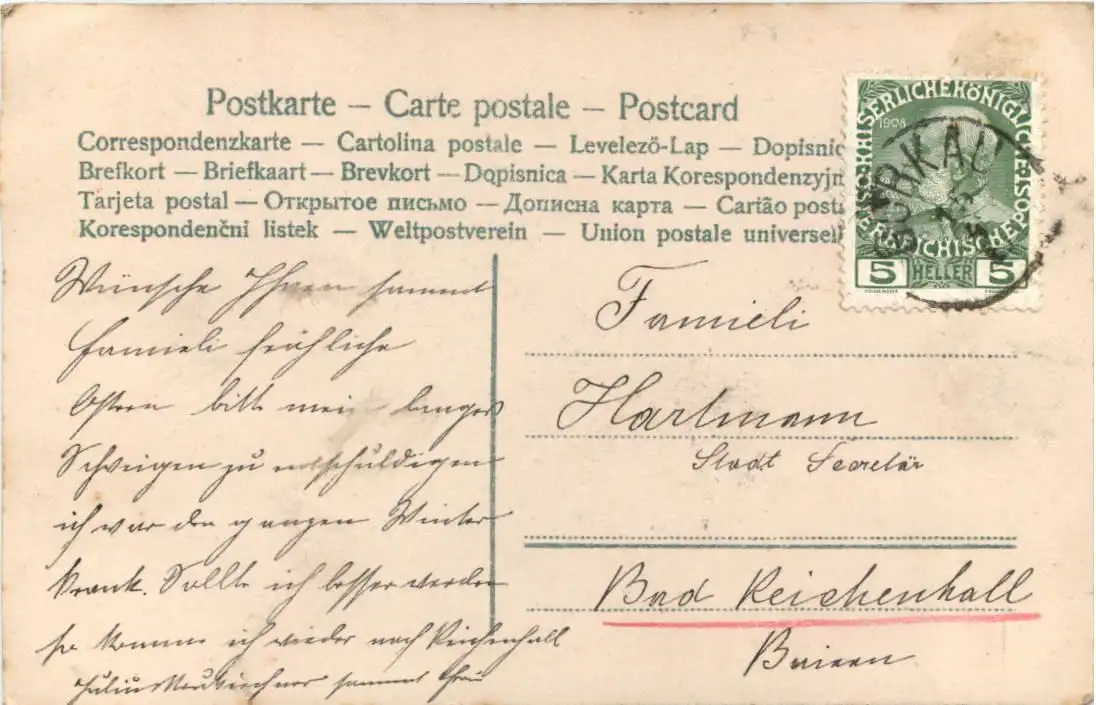 Postkarte — Carte postale — Postcard
Correspondenzkarte — Cartolina postale — Levelező-Lap — Dopisnic
Brefkort — Briefkaart — Brevkort — Dopisnica — Karta Korespondenzyjn
Tarjeta postal — Открытое письмо — Дописна карта — Cartão posta
Korespondenční listek — Weltpostverein — Union postale universel
KAISERLICHEKÖNIGLICHE
ÖSTERREICHISCHEPOST
1908
5 HELLER 5
Wünsche Ihnen sammt
Famieli fröhliche
Ostern bitte mein langes
Schweigen zu entschuldigen
ich war den ganzen Winter
krank. Sollte ich besser werden
so komme ich wieder nach Reichenhall
Julius sammt Frau
Famieli
Hartmann
Stadt Secretär
Bad Reichenhall
Baiern